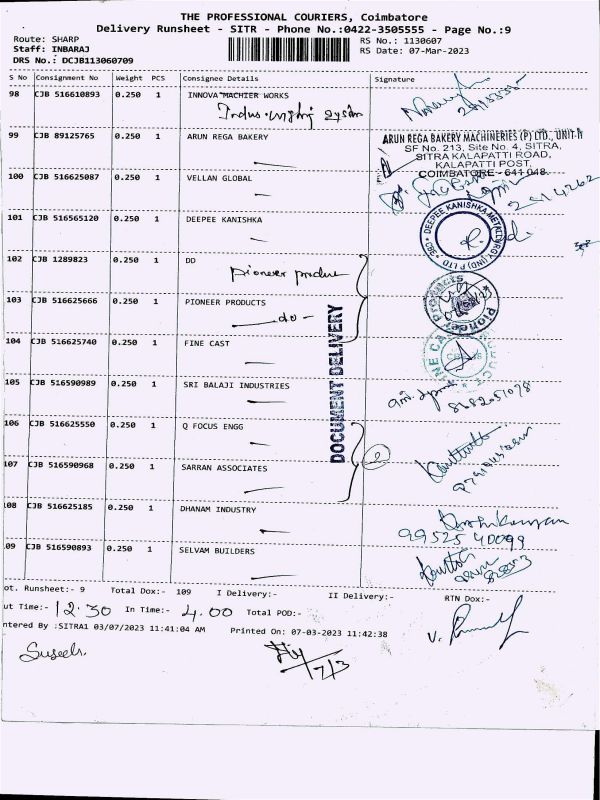 THE PROFESSIONAL COURIERS, Coimbatore
Delivery Runsheet - SITR - Phone No.:0422-3505555 - Page No.:9
Route: SHARP
RS No.: 1130607
Staff: INBARAJ
RS Date: 07-Mar-2023
DRS No.: DCJB113060709
S No Consignment No Weight PCS Consignee Details Signature
98 CJB 516610893 0.250 1 INNOVA MACHIER WORKS
99 CJB 89125765 0.250 1 ARUN REGA BAKERY
ARUN REGA BAKERY MACHINERIES (P) LTD., UNIT-II
SF No. 213, Site No. 4, SITRA,
SITRA KALAPATTI ROAD,
KALAPATTI POST,
COIMBATORE - 641 048.
100 CJB 516625087 0.250 1 VELLAN GLOBAL
101 CJB 516565120 0.250 1 DEEPEE KANISHKA
DEEPEE KANISHKA METALLURGY (IND) (P) LTD
102 CJB 1289823 0.250 1 DD
Pioneer produc
103 CJB 516625666 0.250 1 PIONEER PRODUCTS
do -
Pioneer Products
DOCUMENT DELIVERY
104 CJB 516625740 0.250 1 FINE CAST
105 CJB 516590989 0.250 1 SRI BALAJI INDUSTRIES
106 CJB 516625550 0.250 1 Q FOCUS ENGG
2
107 CJB 516590968 0.250 1 SARRAN ASSOCIATES
08 CJB 516625185 0.250 1 DHANAM INDUSTRY
99525 40099
09 CJB 516590893 0.250 1 SELVAM BUILDERS
ot. Runsheet:- 9 Total Dox:- 109 I Delivery:- II Delivery:- RTN Dox:-
ut Time:- 12.30 In Time:- 4.00 Total POD:-
ntered By :SITRA1 03/07/2023 11:41:04 AM Printed On: 07-03-2023 11:42:38